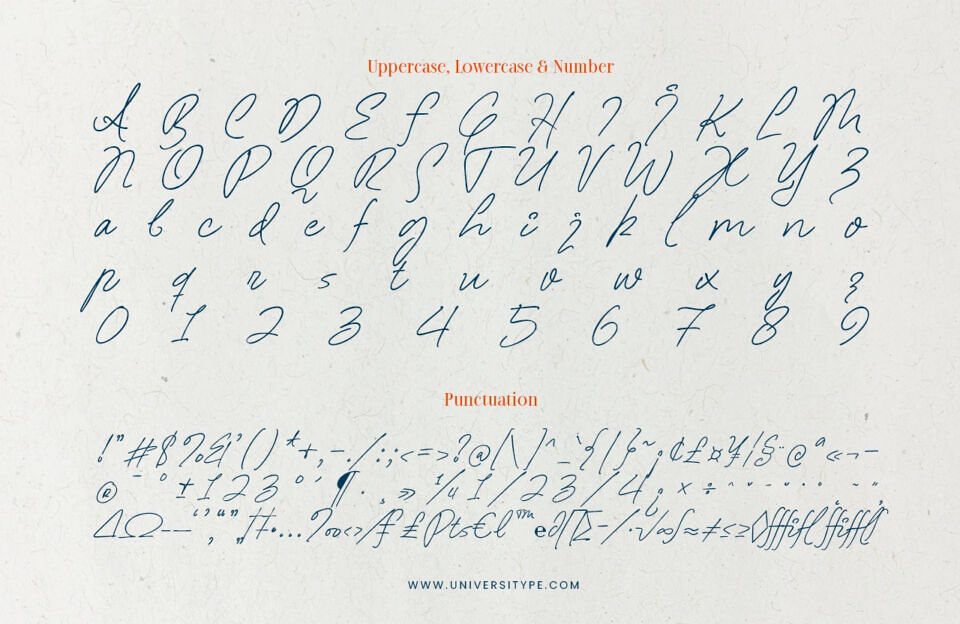 Uppercase, Lowercase & Number
A B C D E F G H I J K L M
N O P Q R S T U V W X Y Z
a b c d e f g h i j k l m n o
p q r s t u v w x y z
0 1 2 3 4 5 6 7 8 9
Punctuation
! " # $ % & ' ( ) * + , - . / : ; < = > ? @ [ \ ] ^ _ ` { | } ~ ¡ ¢ £ ¤ ¥ ¦ § ¨ © ª « ¬ -
® ¯ ° ± 1 2 3 ´ ¶ · ¸ » 1/4 1/2 3/4 ¿ × ÷
∆ Ω – — ‘ ’ ‚ “ ” „ † • … ‰ ‹ › / ƒ ₤ Pts € ℓ ™ e ∂ ∏ ∑ − / · √ ∞ ∫ ≈ ≠ ≤ ≥ ◊
WWW.UNIVERSITYPE.COM